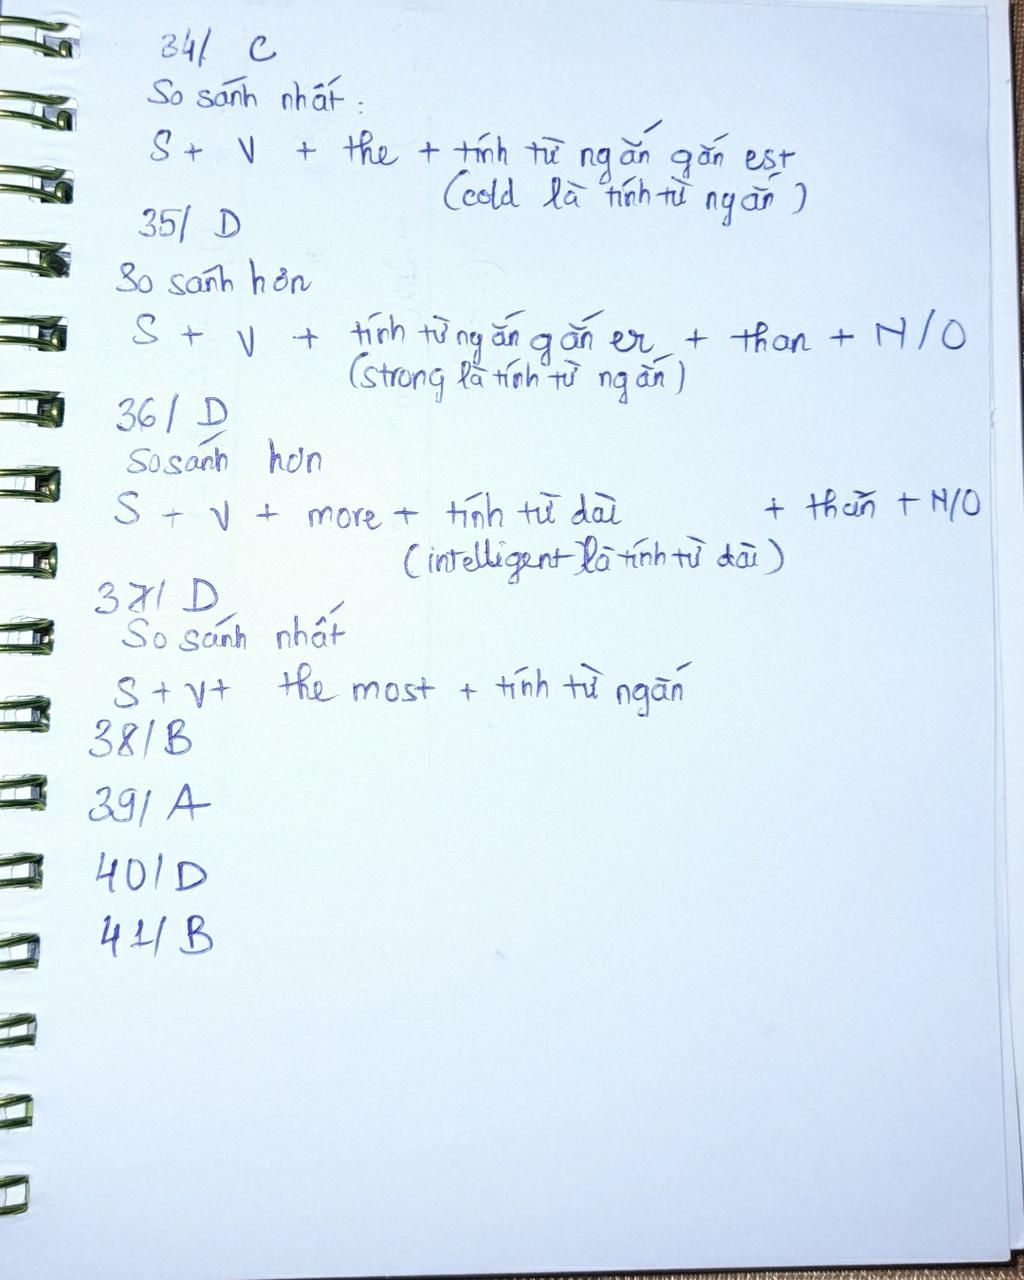 34/ C
So sánh nhất:
S + V + the + tính từ ngắn gắn est
(cold là tính từ ngắn)
35/ D
So sánh hơn
S + V + tính từ ngắn gắn er + than + N/O
(strong là tính từ ngắn)
36/ D
So sánh hơn
S + V + more + tính từ dài + than + N/O
(intelligent là tính từ dài)
37/ D
So sánh nhất
S + V + the most + tính từ ngắn
38/ B
39/ A
40/ D
41/ B